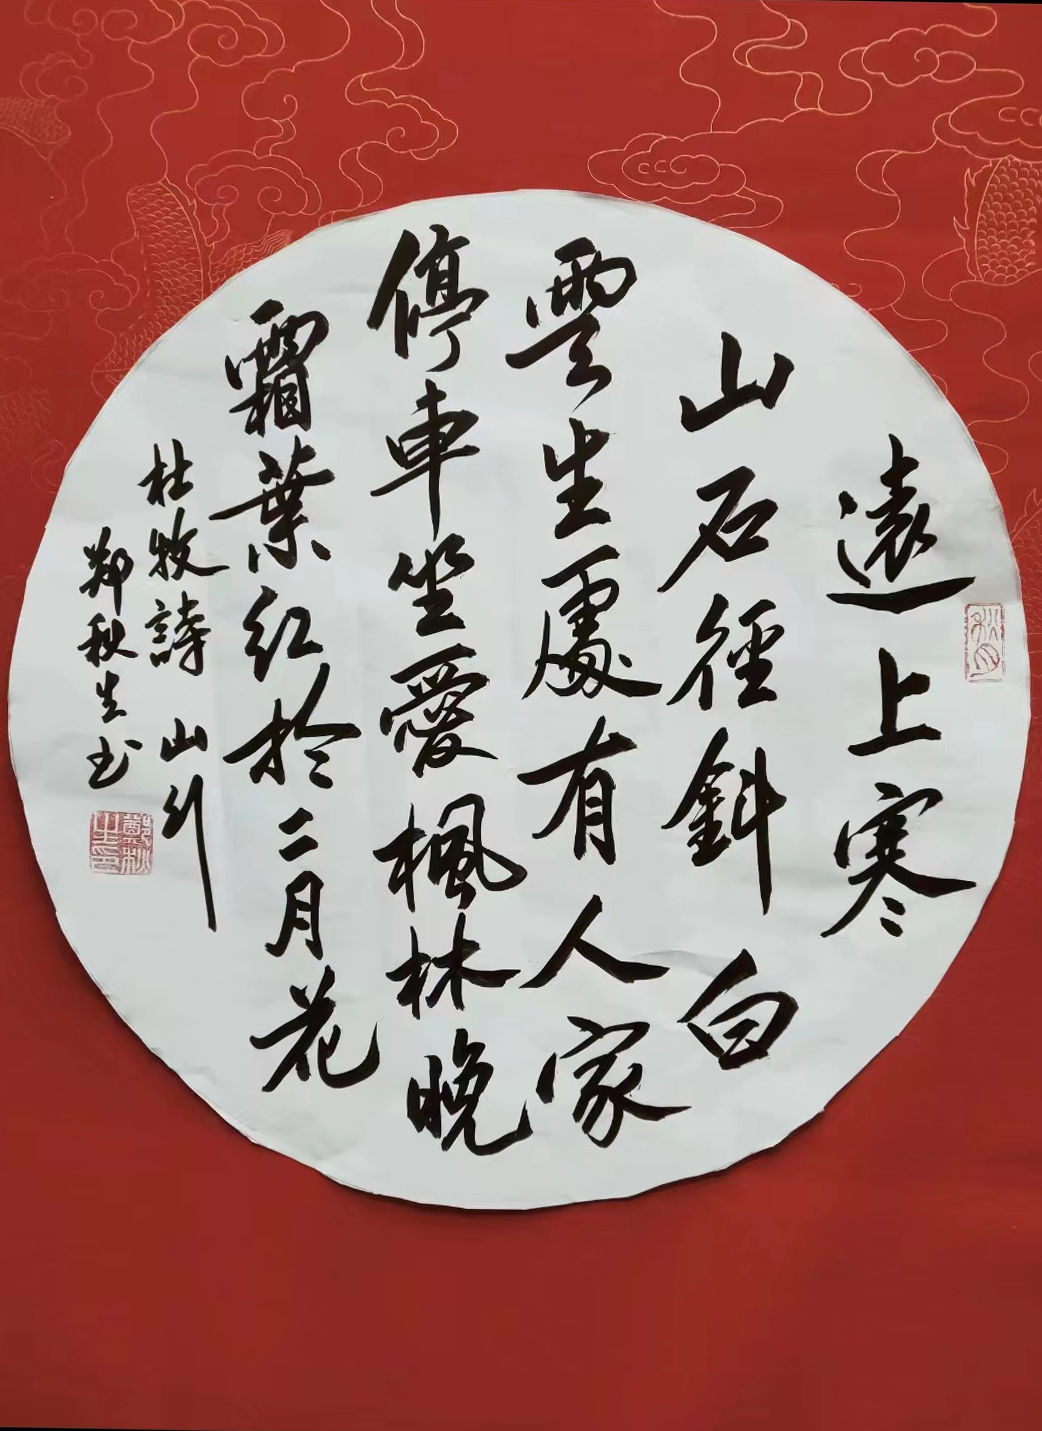 遠上寒
山石徑斜白
雲生處有人家
停車坐愛楓林晚
霜葉紅於二月花
杜牧詩 山行
鄭秋生书
鄭秋生印